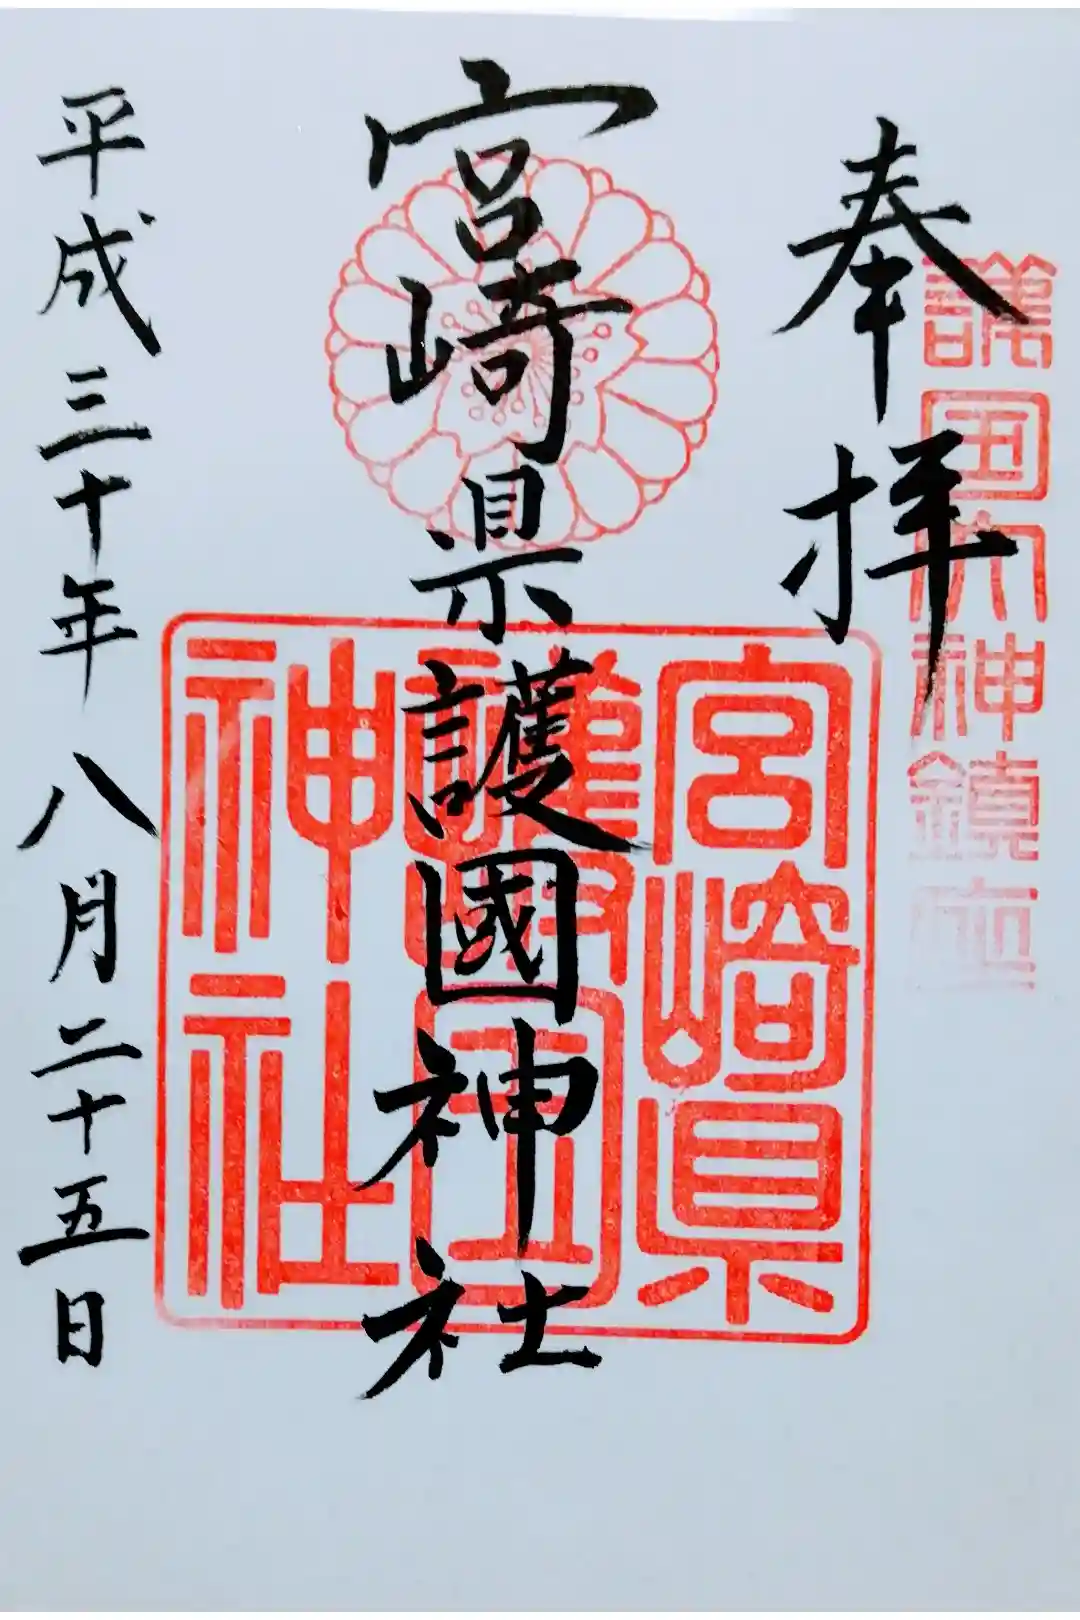 奉拝
護国大神鎮座
宮崎県護國神社
宮崎県
護国
神社
平成三十年八月二十五日